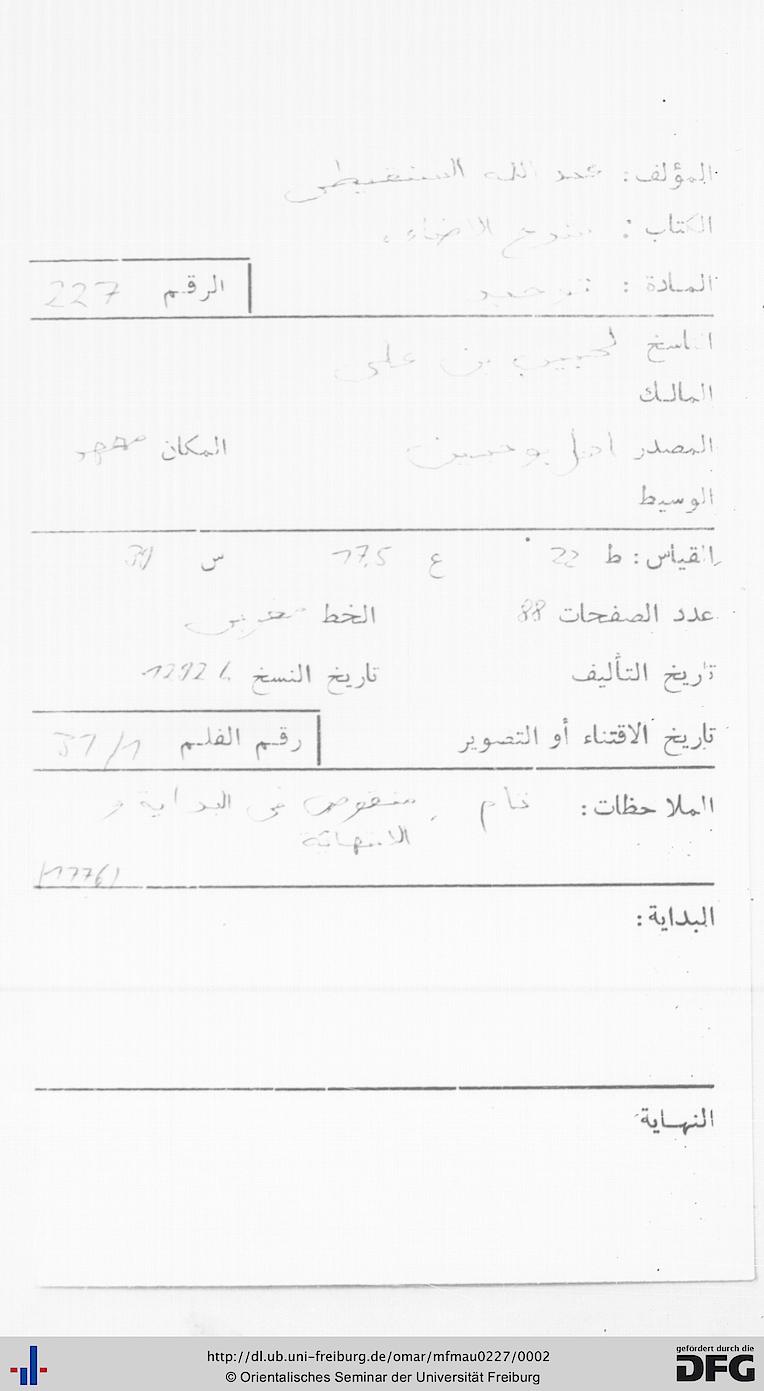 المؤلف: محمد الله الشنقيطي
الكتاب:
المادة: توحيد
الرقم 227
الناسخ لحبيب بن علي
المالك
المصدر اهل بو حسين المكان معهد
الوسيط
القياس: ط 22 ع 17,5 س
عدد الصفحات 88 الخط مغربي
تاريخ التأليف تاريخ النسخ 1292
تاريخ الاقتناء أو التصوير رقم الفلم 31/1
الملاحظات: منقوص في البداية و
البداية:
النهاية
http://dl.ub.uni-freiburg.de/omar/mfmau0227/0002
© Orientalisches Seminar der Universität Freiburg
gefördert durch die
DFG